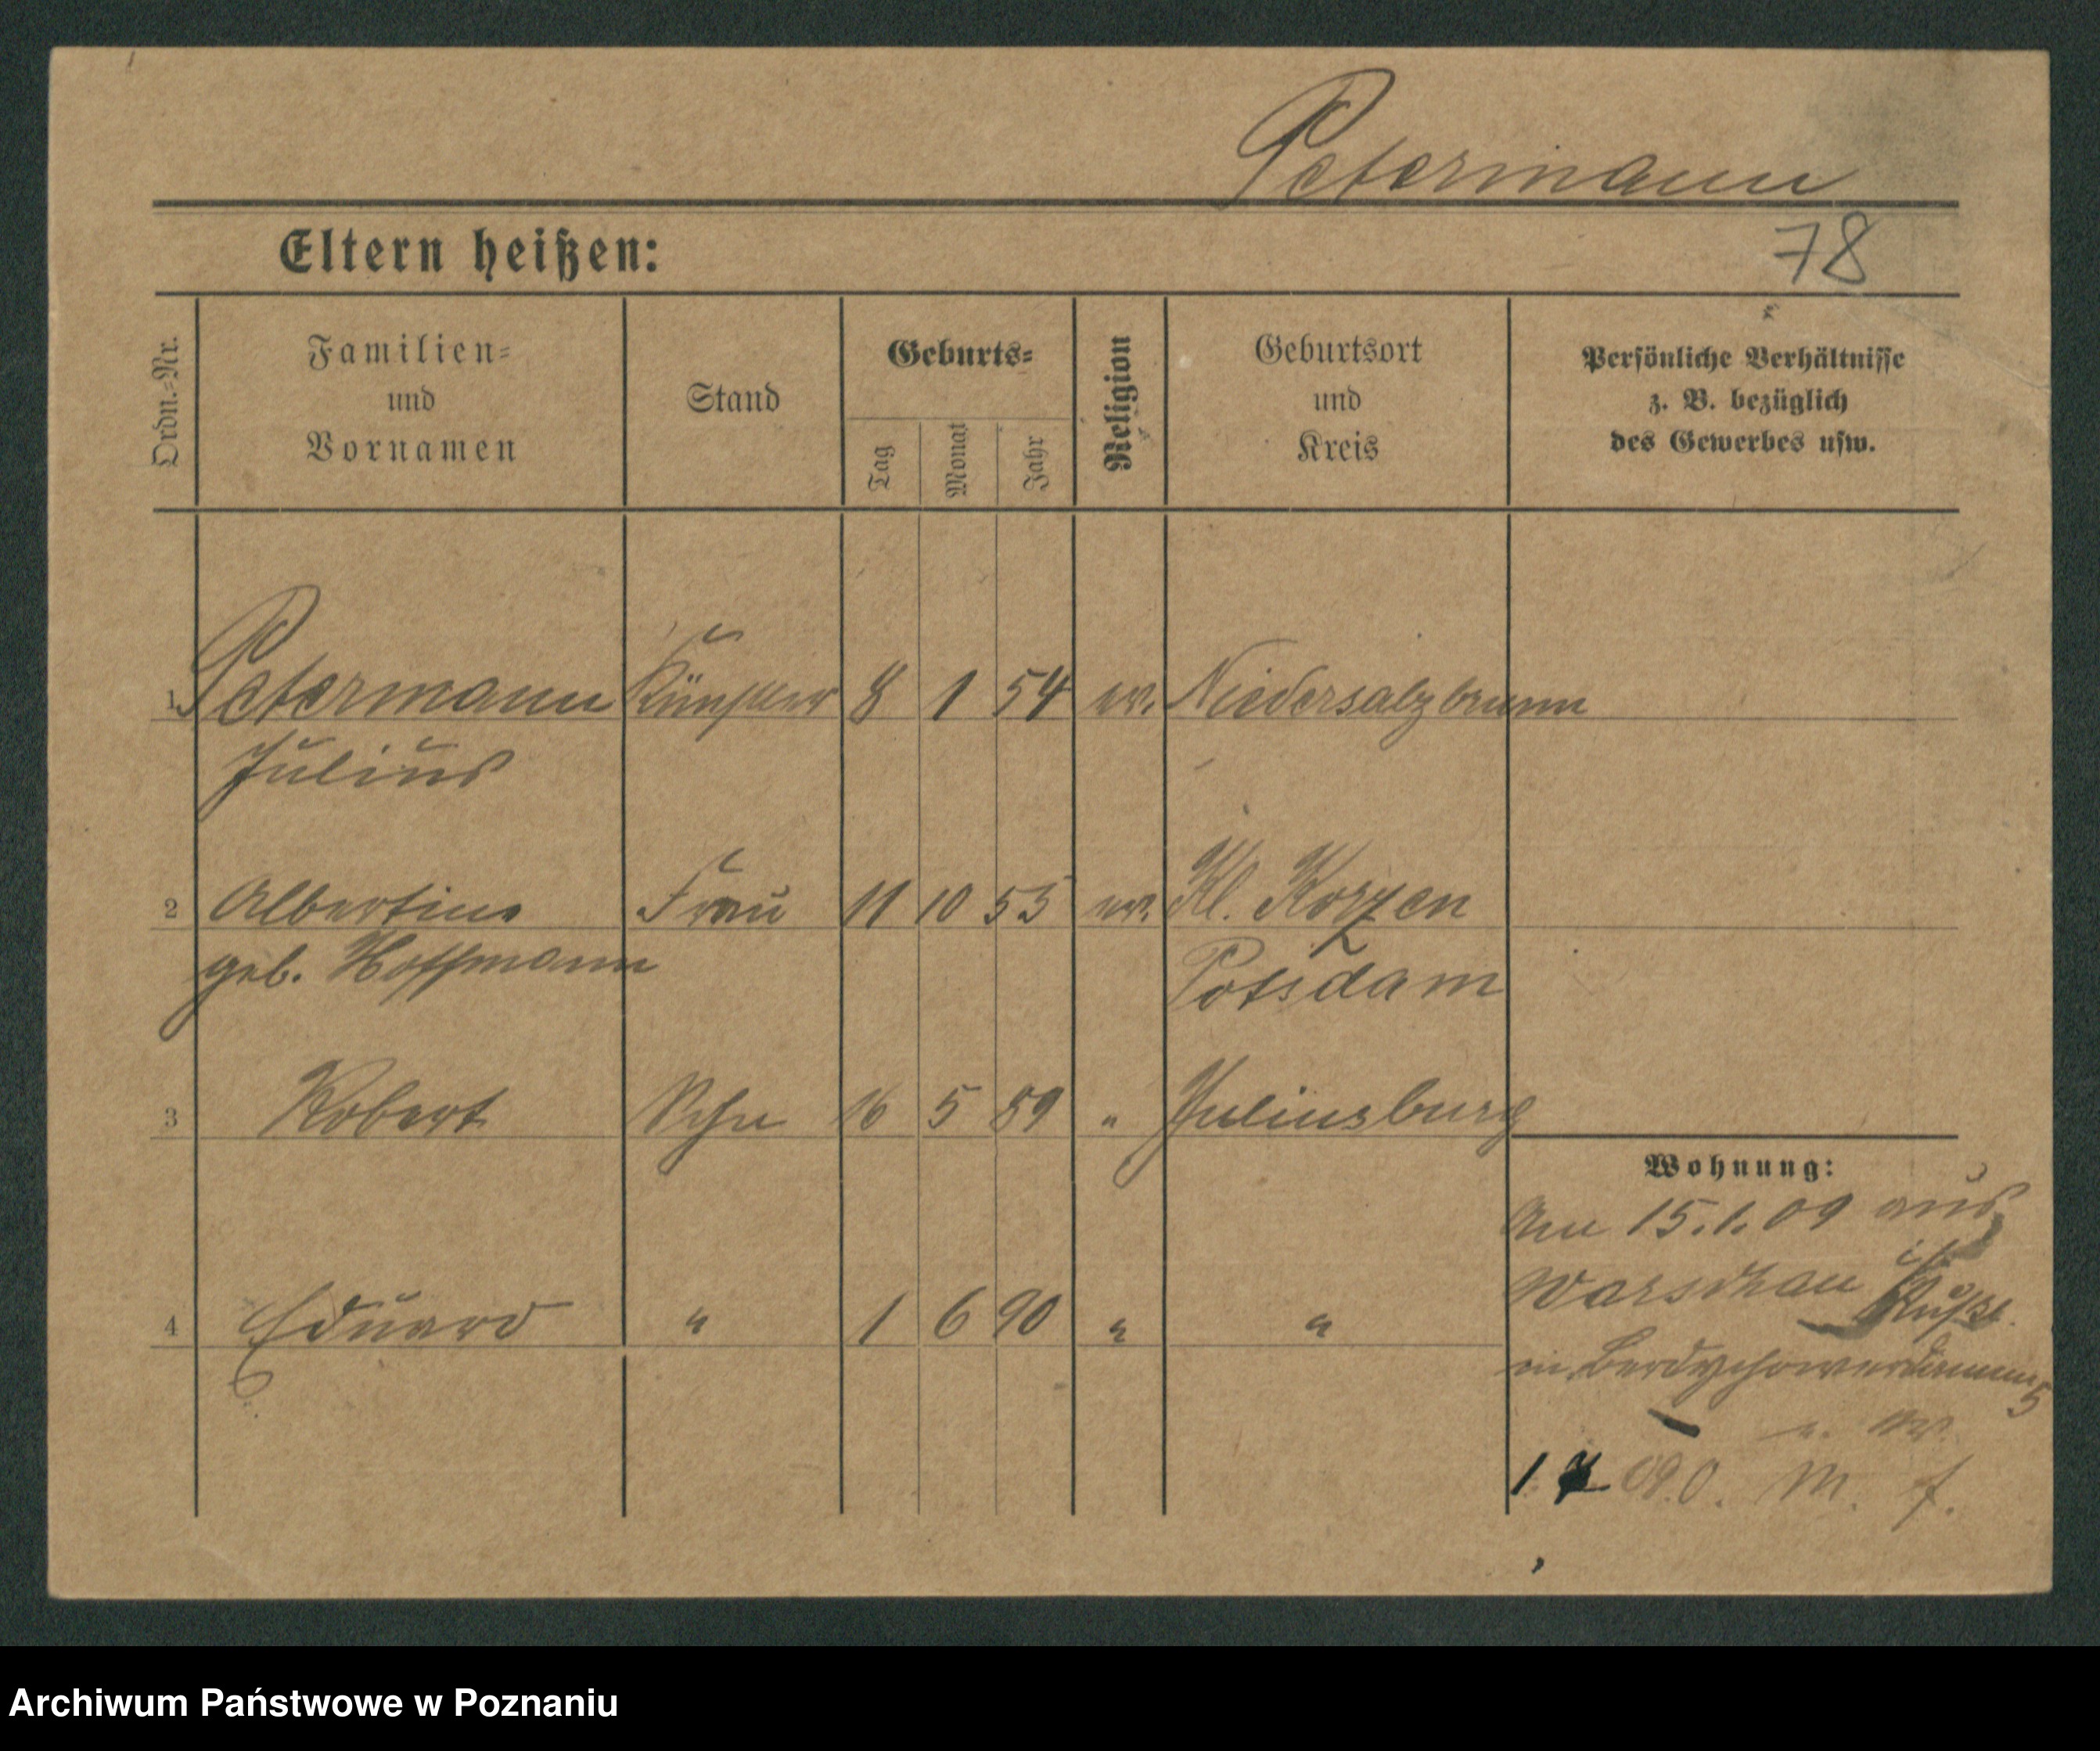 Petermann
Eltern heißen:
78
Ordn.-Nr.
Familien-
und
Vornamen
Stand
Geburts-
Tag
Monat
Jahr
Religion
Geburtsort
und
Kreis
Persönliche Verhältnisse
z. B. bezüglich
des Gewerbes usw.
1 Petermann Künstler 8 1 54 ev. Niedersalzbrunn
Julius
2 Albertine Frau 11 10 55 ev. Kl. Korzen
geb. Hoffmann Potsdam
3 Robert Sohn 16 5 89 " Juliusburg
Wohnung:
Am 15.1.09 aus
Warschau Rußl.
4 Eduard " 1 6 90 " "
in Berdychowerdamm 5
1. 09. O. M. f.
Archiwum Państwowe w Poznaniu